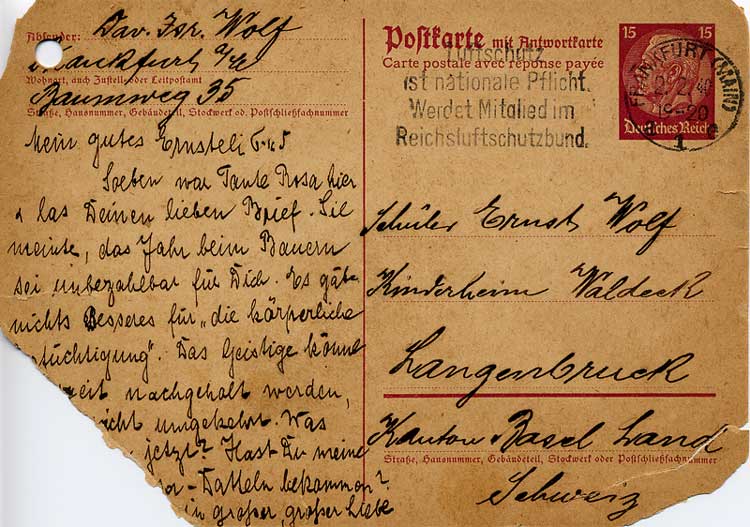 Absender: Dav. Isr. Wolf
Frankfurt a/M
Wohnort, auch Zustell- oder Leitpostamt
Baumweg 35
Straße, Hausnummer, Gebäudeteil, Stockwerk od. Postschließfachnummer
Mein gutes Ernsteli
Soeben war Tante Rosa hier
u las Deinen lieben Brief. Sie
meinte, das Jahr beim Bauern
sei unbezahlbar für Dich. Es gäbe
nichts Besseres für „die körperliche
tüchtigung". Das Geistige könne
zeit nachgeholt werden,
nicht umgekehrt. Was
jetzt? Hast Du meine
Datteln bekommen?
in großer, großer Liebe
Postkarte mit Antwortkarte
Carte postale avec réponse payée
Luftschutz
ist nationale Pflicht.
Werdet Mitglied im
Reichsluftschutzbund.
15 15
Deutsches Reich
FRANKFURT (MAIN)
19-20
1
Schüler Ernst Wolf
Kinderheim Waldeck
Langenbruck
Kanton Basel Land
Straße, Hausnummer, Gebäudeteil, Stockwerk oder Postschließfachnummer
Schweiz